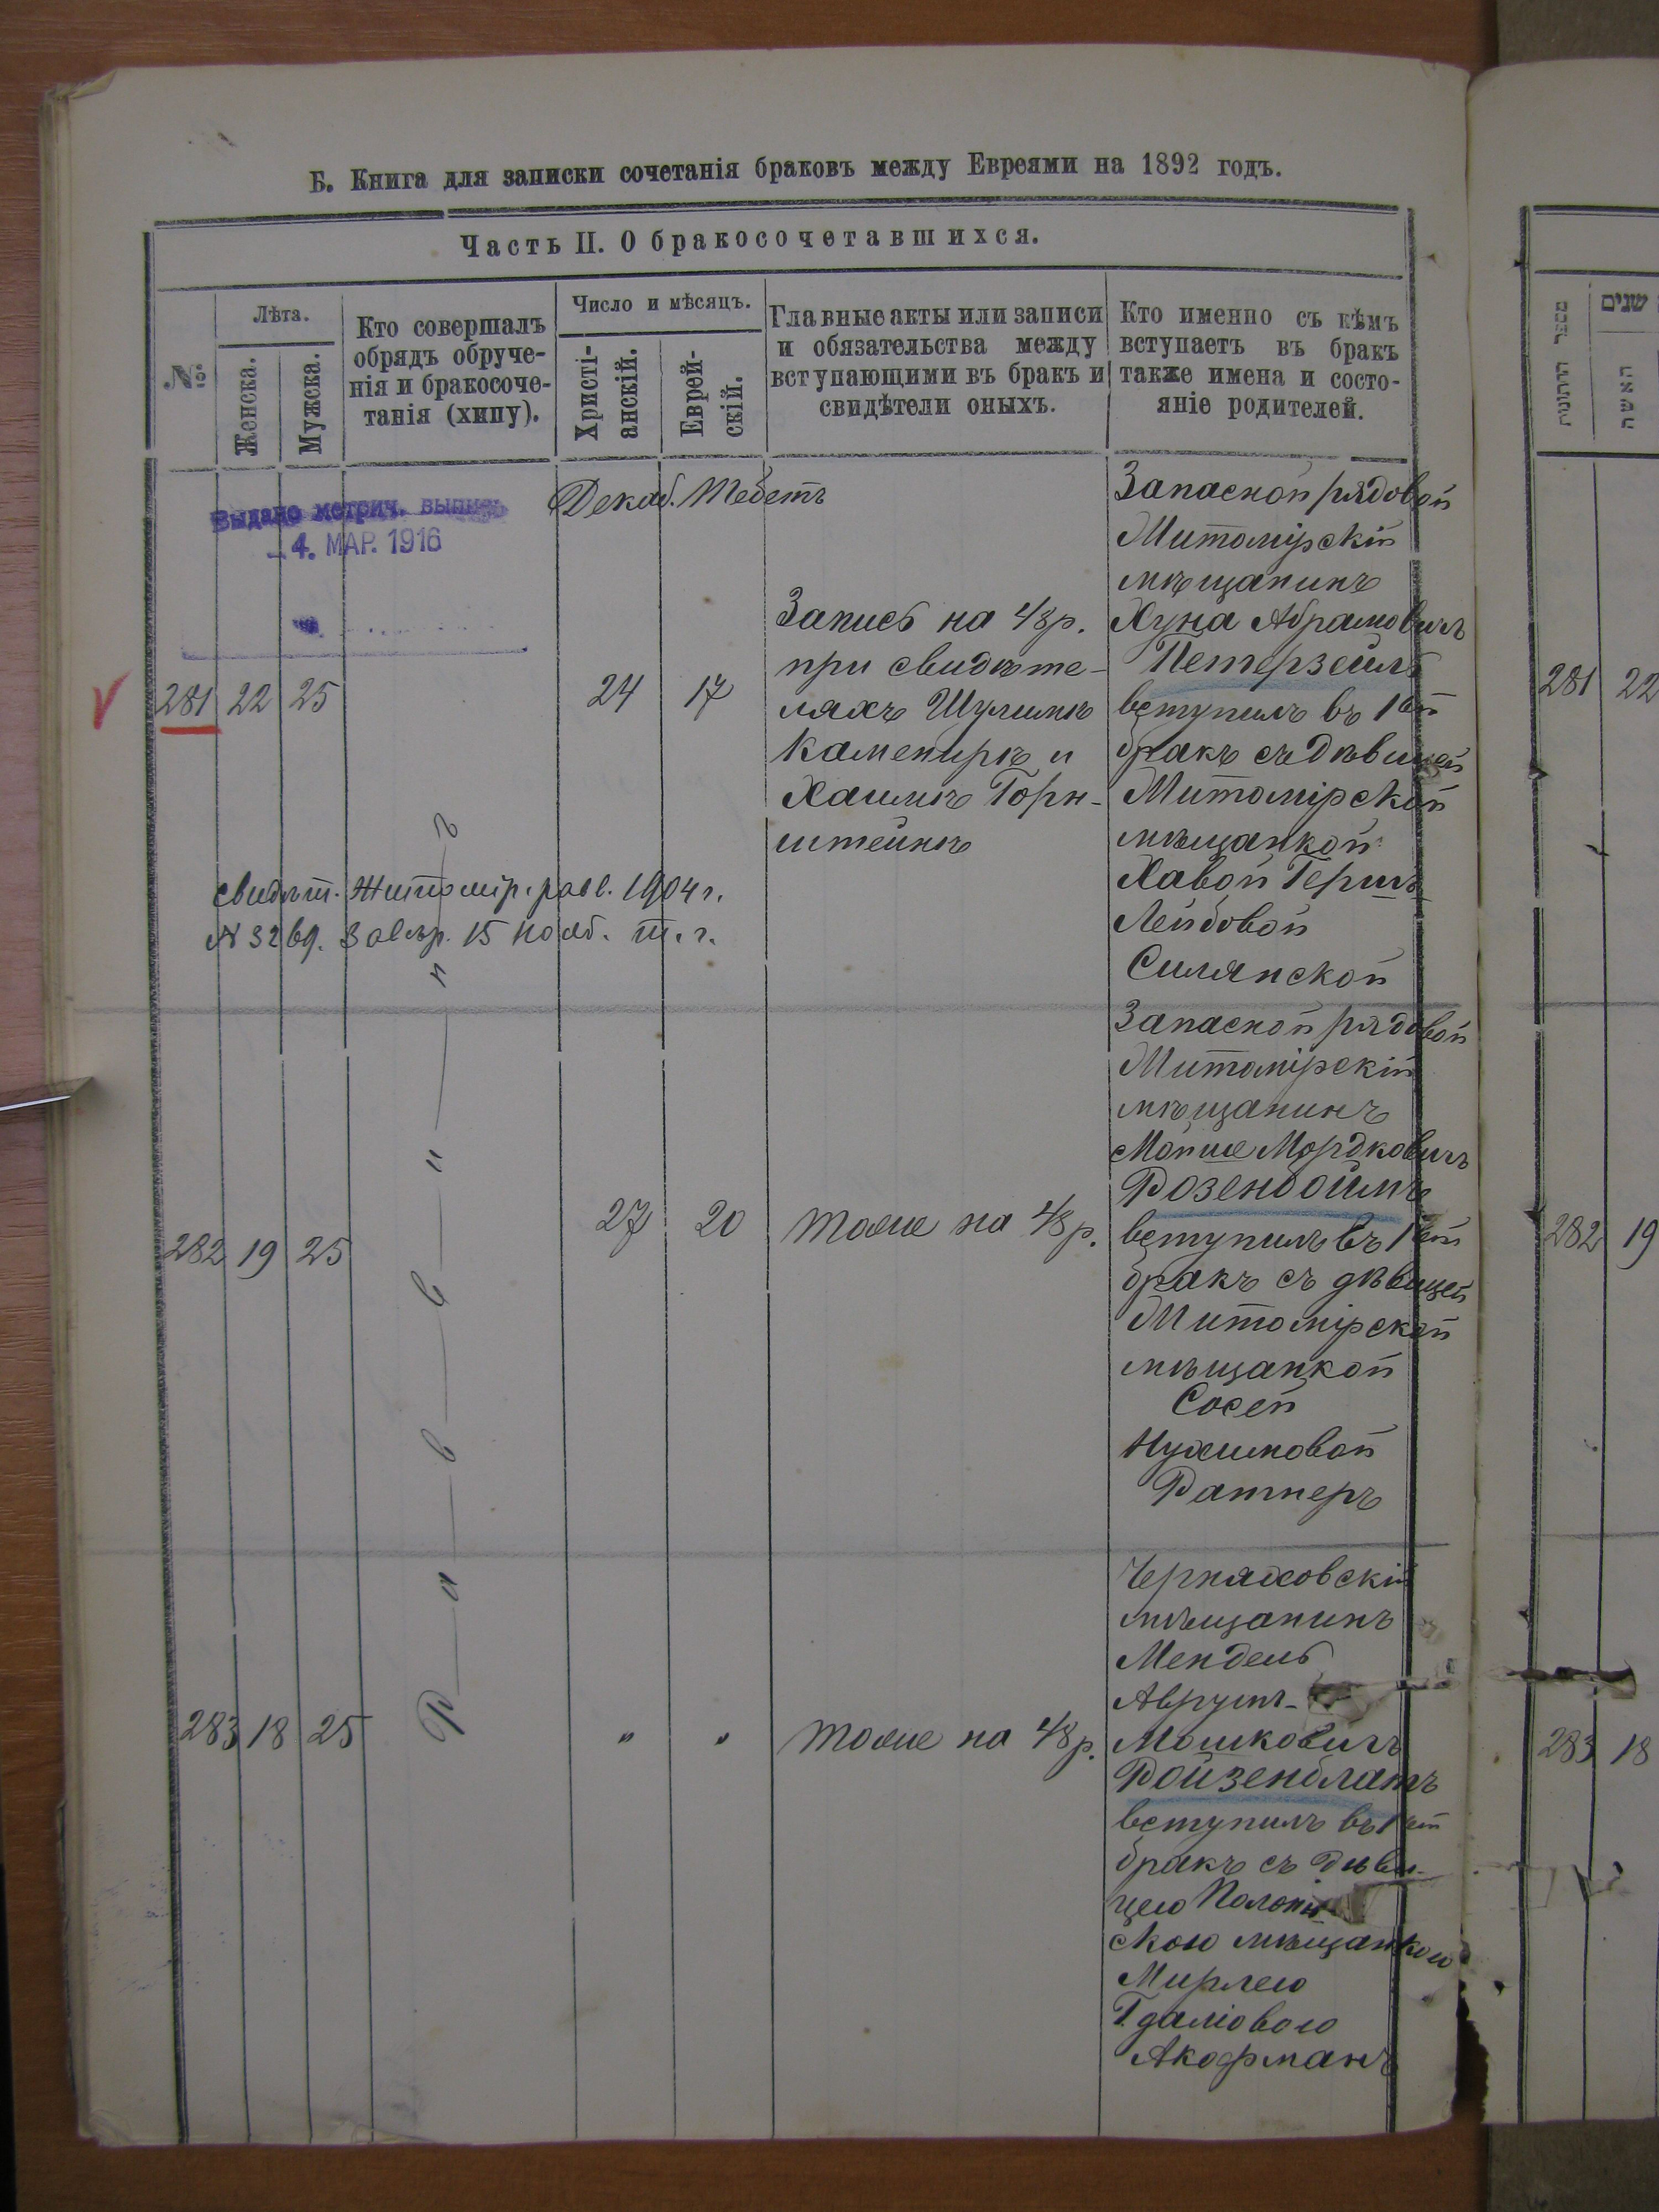 Б. Книга для записки сочетанія браковъ между Евреями на 1892 годъ.
Часть II. О бракосочетавшихся.
№
Лѣта.
Женска.
Мужска.
Кто совершалъ
обрядъ обруче-
нія и бракосоче-
танія (хипу).
Число и мѣсяцъ.
Христі-
анскій.
Еврей-
скій.
Главные акты или записи
и обязательства между
вступающими въ бракъ и
свидѣтели оныхъ.
Кто именно съ кѣмъ
вступаетъ въ бракъ
также имена и состо-
яніе родителей.
Выдано метрич. выпись
4. МАР. 1916
Декаб. Тебетъ
281 22 25
24 17
Запись на 48 р.
при свидѣте-
ляхъ Шулимѣ
Каменирѣ и
Хаимѣ Горн-
штейнѣ
Запасной рядовой
Житомірскій
мѣщанинъ
Хуна Абрамовичъ
Петерзейль
вступилъ въ 1ый
бракъ съ дѣвицей
Житомірской
мѣщанкой
Хавой Гершъ
Лейбовой
Силянской
свидѣт. Житомір. равв. 1904 г.
№ 3269. 15 нояб. т. г.
Р а в в и н ъ
282 19 25
27 20
тоже на 48 р.
Запасной рядовой
Житомірскій
мѣщанинъ
Мойше Мордковичъ
Розенбоймъ
вступилъ въ 1ый
бракъ съ дѣвицей
Житомірской
мѣщанкой
Сосей
Нухимовой
Ратнеръ
283 18 25
" "
тоже на 48 р.
Черняховскій
мѣщанинъ
Мендель
Аврумъ-
Мошковичъ
Ройзенблатъ
вступилъ въ 1ый
бракъ съ дѣви-
цею
скою мѣщанкою
Мирлею
Гдаліовою
Акофманъ
מספר החתונות
שנים
האשה
281 22
282 19
283 18